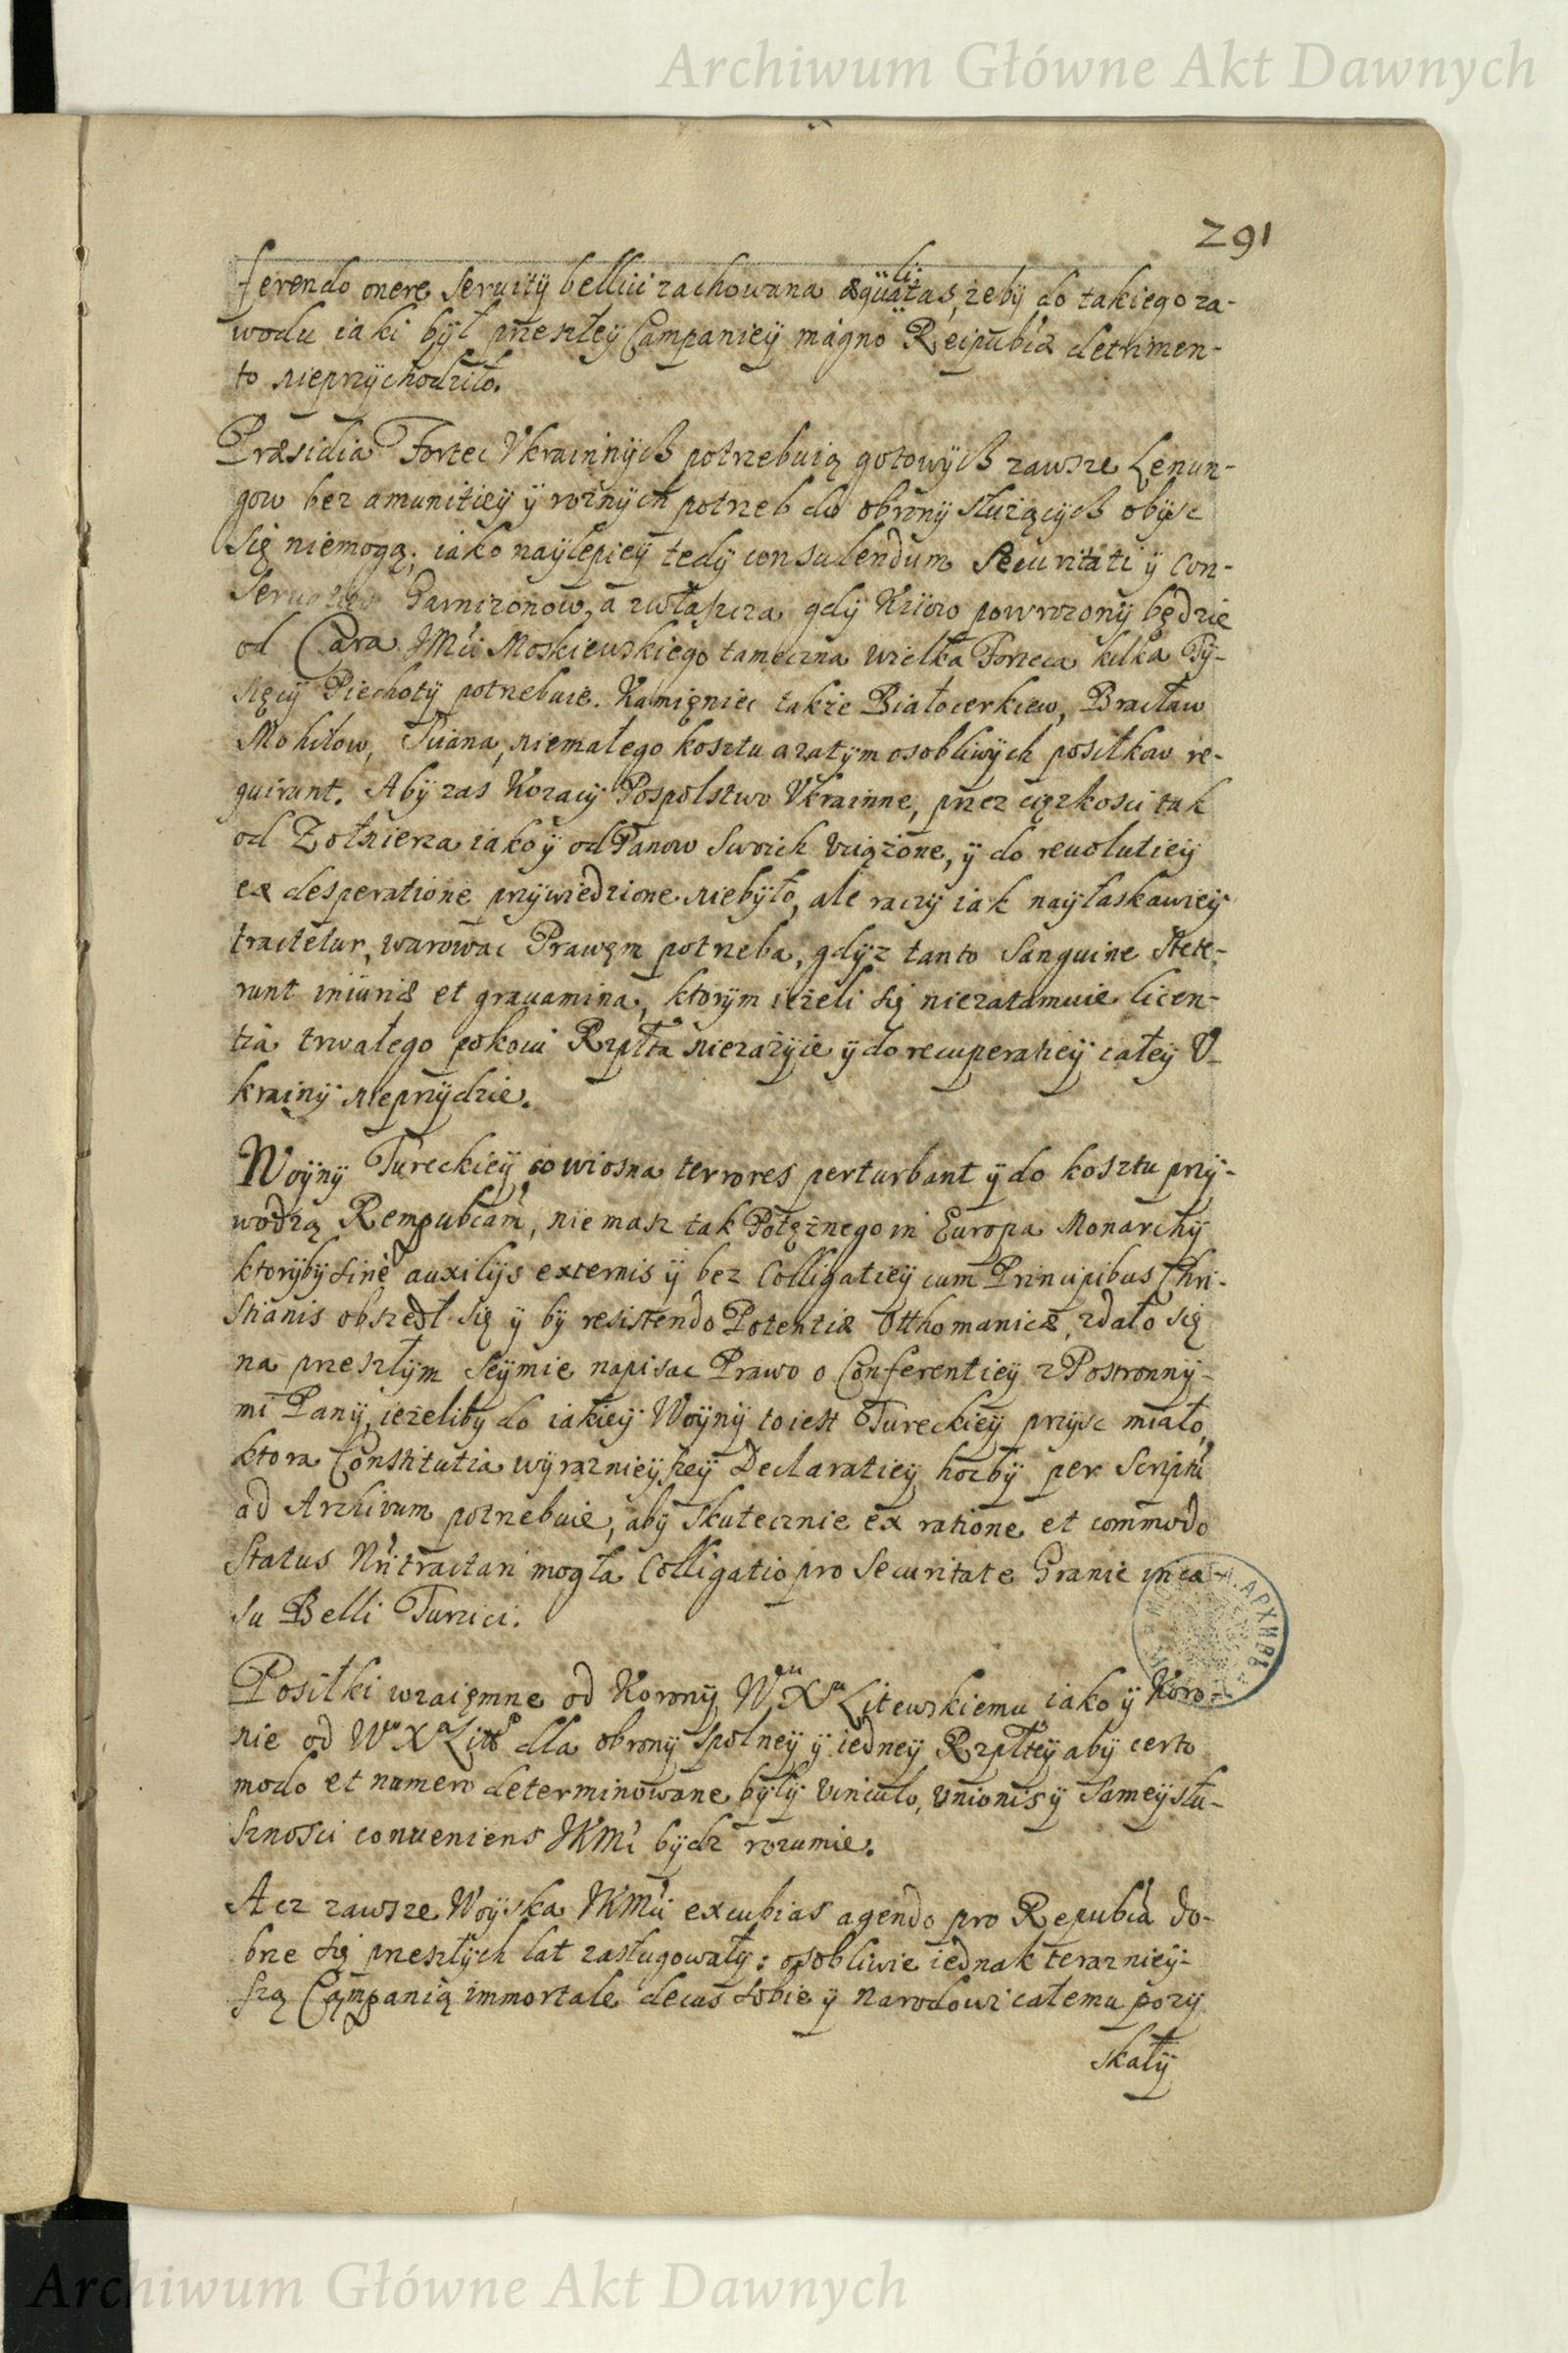 Archiwum Główne Akt Dawnych
291
ferendo onere seruitÿ bellici zachowana æqualitas, żeby do takiego za-
wodu iaki był przeszłey Campaniey magno Reipublcæ detrimen-
to nieprzychodziło.
Præsidia Fortec Vkrainnych potrzebuią gotowych zawsze Lenun-
gow bez amunitiey y rożnych potrzeb do obrony służących obyśc
się niemogą; iako naylepiey tedy consulendum securitati y con-
Garnizonow, a zwłaszcza gdy Kiiow powrocony będzie
od Cara JMci Moskiewskiego tameczna wielka Forteca kilka Ty-
sięcy Piechoty potrzebuie. Kamięniec także Białocerkiew, Bracław
Mohilow, niemałego kosztu azatym osobliwych posiłkow re-
quirunt. Aby zas Kozacy Pospolstwo Vkrainne, przez cięzkosci tak
od Zołnierza iako y od Panow swoich vciążone, y do reuolutiey
ex desperatione przywiedzione niebyło, ale raczy iak nayłaskawiey
tractetur, warowac Prawęm potrzeba, gdyz tanto sanguine stete-
runt iniuriæ et grauamina, ktorym ieżeli się niezatamuie licen-
tia trwałego pokoiu Rzplta niezażyie y do recuperatiey całey V-
krainy nieprzydzie.
Woyny Tureckiey co wiosna terrores perturbant y do kosztu przy-
wodzą Rempublcam, nie masz tak Potężnego in Europa Monarchy
ktoryby sine auxilijs externis y bez Colligatiey cum Principibus Chri-
stianis obszedł się y by resistendo Potentiæ Otthomanicæ, zdało się
na przeszłym Seymie napisac Prawo o Conferentiey z Postronny-
mi Pany, ieżeliby do iakiey Woyny to iest Tureckiey przysc miało,
ktora Constitutia wyraznieyszey Declaratiey hocby per Scriptu
ad Archivum potrzebuie, aby skutecznie ex ratione et commodo
Status Nri tractari mogła Colligatio pro Securitate Granic in ca-
su Belli Turcici.
Posiłki wzaięmne od Korony Wmu Xu Litewskiemu iako y Koro-
nie od Wo Xa Littgo dla obrony spolney y iedney Rzpltey aby certo
modo et numero determinowane były vinculo, vnionis y samey słu-
sznosci conueniens JKMć bydz rozumie.
Acz zawsze Woyska JKMci excubias agendo pro Republca do-
brze się przeszłych lat zasługowały: osobliwie iednak terazniey-
szą Campanią immortale decus sobie y narodowi całemu pozy
skały
Archiwum Główne Akt Dawnych